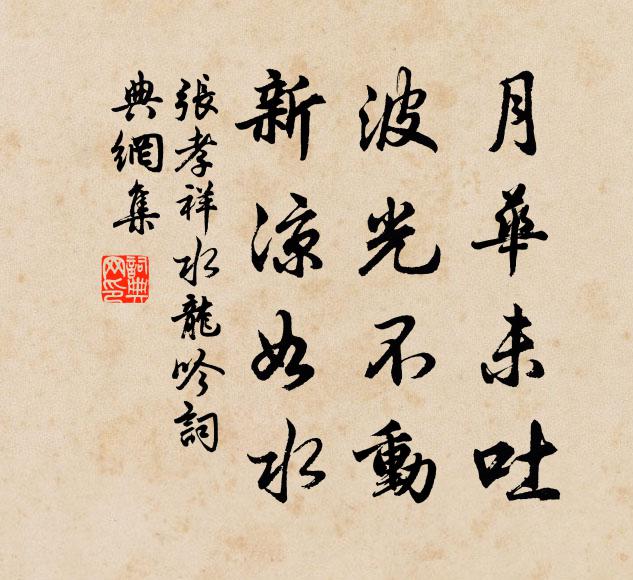 月華未吐
波光不動
新涼如水
張孝祥水龍吟詞
典網集
詞典
网印